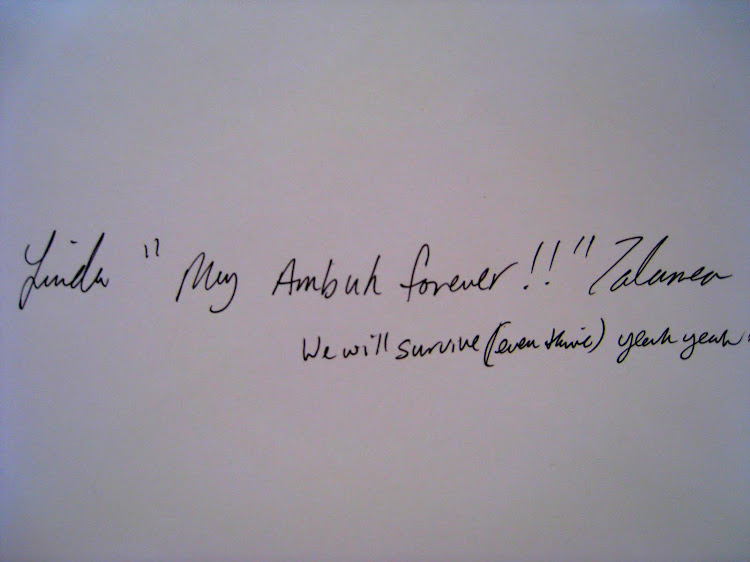 Linda "My Ambuh forever!!"
We will survive (even thrive) yeah yeah